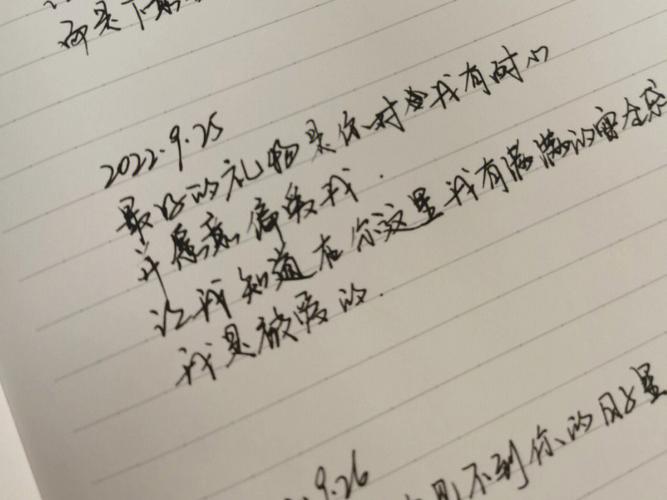 而是下
2022.9.25
最好的礼物是你对我有耐心
并愿意偏爱我.
让我知道在你这里我有满满的安全感
我是被爱的.
9.26
不到你的日子里